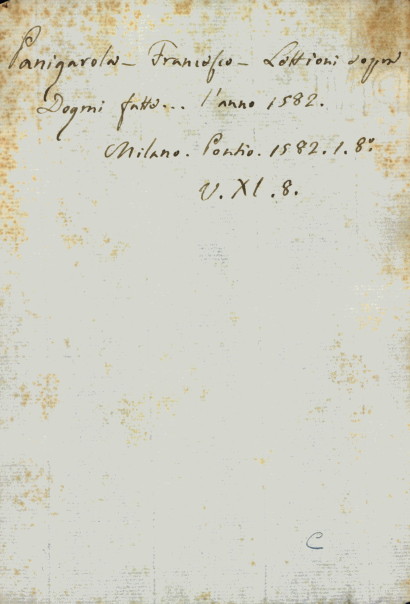 Panigarola - Francesco - Lettioni sopra
Dogmi fatte... l'anno 1582.
Milano. Pontio. 1582. 1. 8º
V. XI. 8.
C